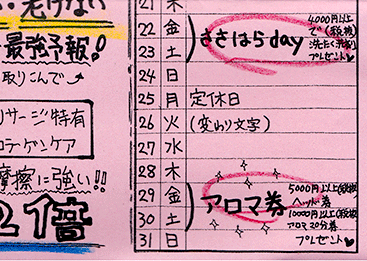 ・老けない
最強予報!
取りこんで
リサージ特有
コラーゲンケア
摩擦に強い!!
2倍
21 木
22 金
23 土
ささはらday
4000円以上
で(税抜)
プレゼント♥
24 日
25 月 定休日
26 火 (変わり文字)
27 水
28 木
29 金
30 土
31 日
アロマ券
5000円以上(税抜)
ヘッド券
10000円以上(税抜)
アロマ20分券
プレゼント♥